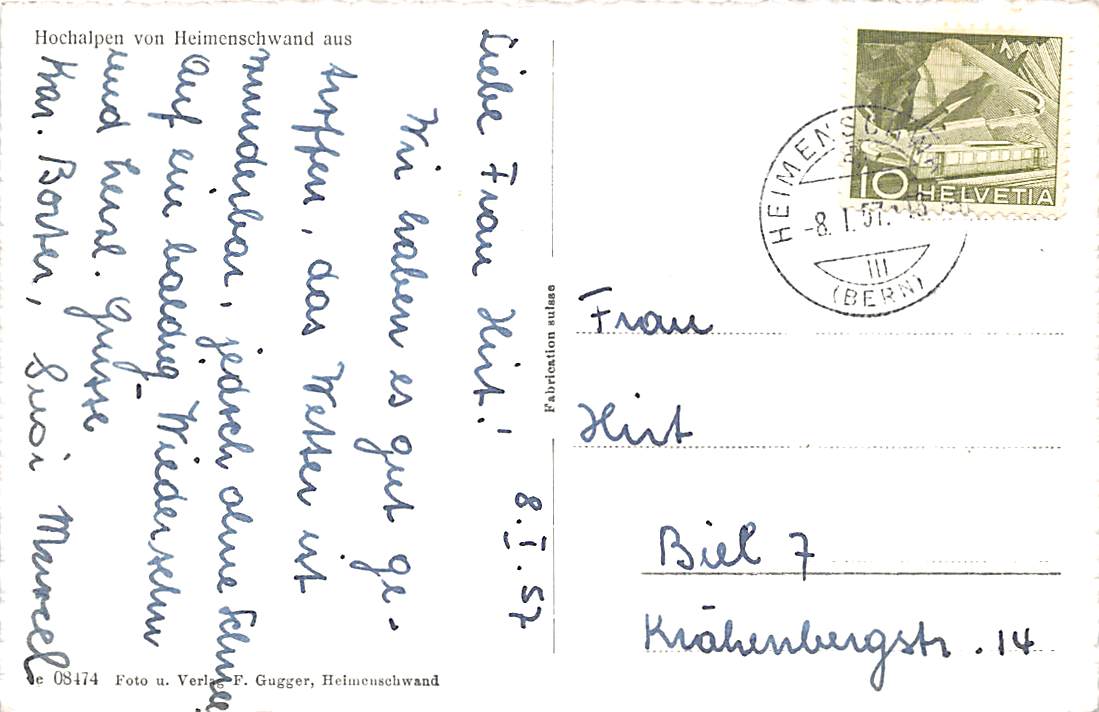 Hochalpen von Heimenschwand aus
8. I. 57
Liebe Frau Hirt!
Wir haben es gut ge-
troffen, das Wetter ist
wunderbar, jedoch ohne Schnee
Auf ein baldig Wiedersehn
und herzl. Grüsse
Fam. Borter, Susi Marcel
08474 Foto u. Verlag F. Gugger, Heimenschwand
Fabrication suisse
10 HELVETIA
HEIMENSCHWAND
-8. I. 57.
III
(BERN)
Frau
Hirt
Biel 7
Krähenbergstr. 14